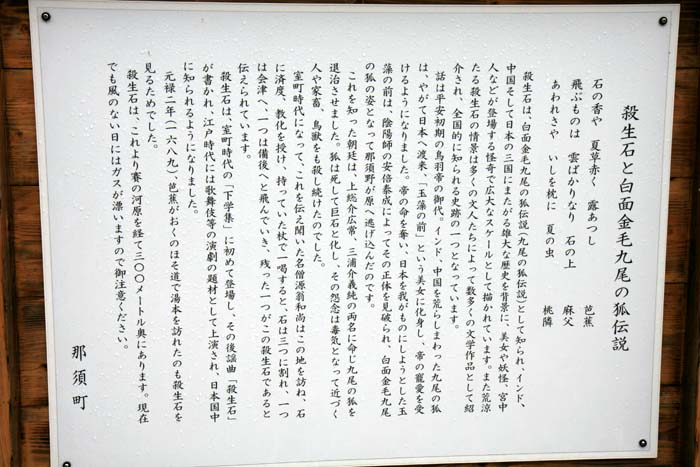 殺生石と白面金毛九尾の狐伝説
石の香や 夏草赤く 露あつし 芭蕉
飛ぶものは 雲ばかりなり 石の上 麻父
あわれさや いしを枕に 夏の虫 桃隣
殺生石は、白面金毛九尾の狐伝説(九尾の狐伝説)として知られ、インド、
中国そして日本の三国にまたがる雄大な歴史を背景に、美女や妖怪、宮中
人などが登場する怪奇で広大なスケールとして描かれています。また荒涼
たる殺生石の情景は多くの文人たちによって数多くの文学作品として紹
介され、全国的に知られる史跡の一つとなっています。
話は平安初期の鳥羽帝の御代。インド、中国を荒らしまわった九尾の狐
は、やがて日本へ渡来、「玉藻の前」という美女に化身し、帝の寵愛を受
けるようになりました。帝の命を奪い、日本を我がものにしようとした玉
藻の前は、陰陽師の安倍泰成によってその正体を見破られ、白面金毛九尾
の狐の姿となって那須野が原へ逃げ込んだのです。
これを知った朝廷は、上総介広常、三浦介義純の両名に命じ九尾の狐を
退治させました。狐は死して巨石と化し、その怨念は毒気となって近づく
人や家畜、鳥獣をも殺し続けたのでした。
室町時代になって、これを伝え聞いた名僧源翁和尚はこの地を訪ね、石
に済度、教化を授け、持っていた杖で一喝すると、石は三つに割れ、一つ
は会津へ、一つは備後へと飛んでいき、残った一つがこの殺生石であると
伝えられています。
殺生石は、室町時代の「下学集」に初めて登場し、その後謡曲「殺生石」
が書かれ、江戸時代には歌舞伎等の演劇の題材として上演され、日本国中
に知られるようになりました。
元禄二年(一六八九)、芭蕉がおくのほそ道で湯本を訪れたのも殺生石を
見るためでした。
殺生石は、これより賽の河原を経て三〇〇メートル奥にあります。現在
でも風のない日にはガスが漂いますので御注意ください。
那須町